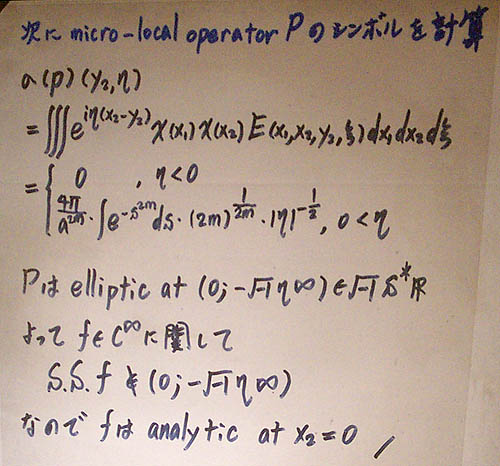 次に micro-local operator P のシンボルを計算
a(p)(y₂,η)
=∭e^{iη(x₂-y₂)}χ(x₁)χ(x₂)E(x₁,x₂,y₂,ξ)dx₁dx₂dξ
={ 0 , η<0
4π/a^{2m}・∫e^{-s^{2m}}ds・(2m)^{1/2m}・|η|^{-1/2}, 0<η
Pは elliptic at (0;-√-1η∞)∈√-1S*ℝ
よって f∈C^∞に関して
S.S.f∌(0;-√-1η∞)
なので fは analytic at x₂=0 //